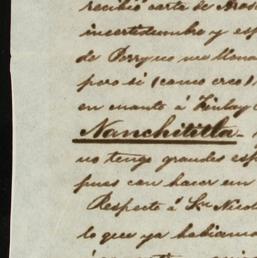 recibió carta de
incertidumbre y
de Perry no me
pero si (como creo)
en cuanto á Finlay
Nanchititla -
no tengo grandes
pues can hacer en
Respecto á Sr. Nicol
lo que ya habiamo